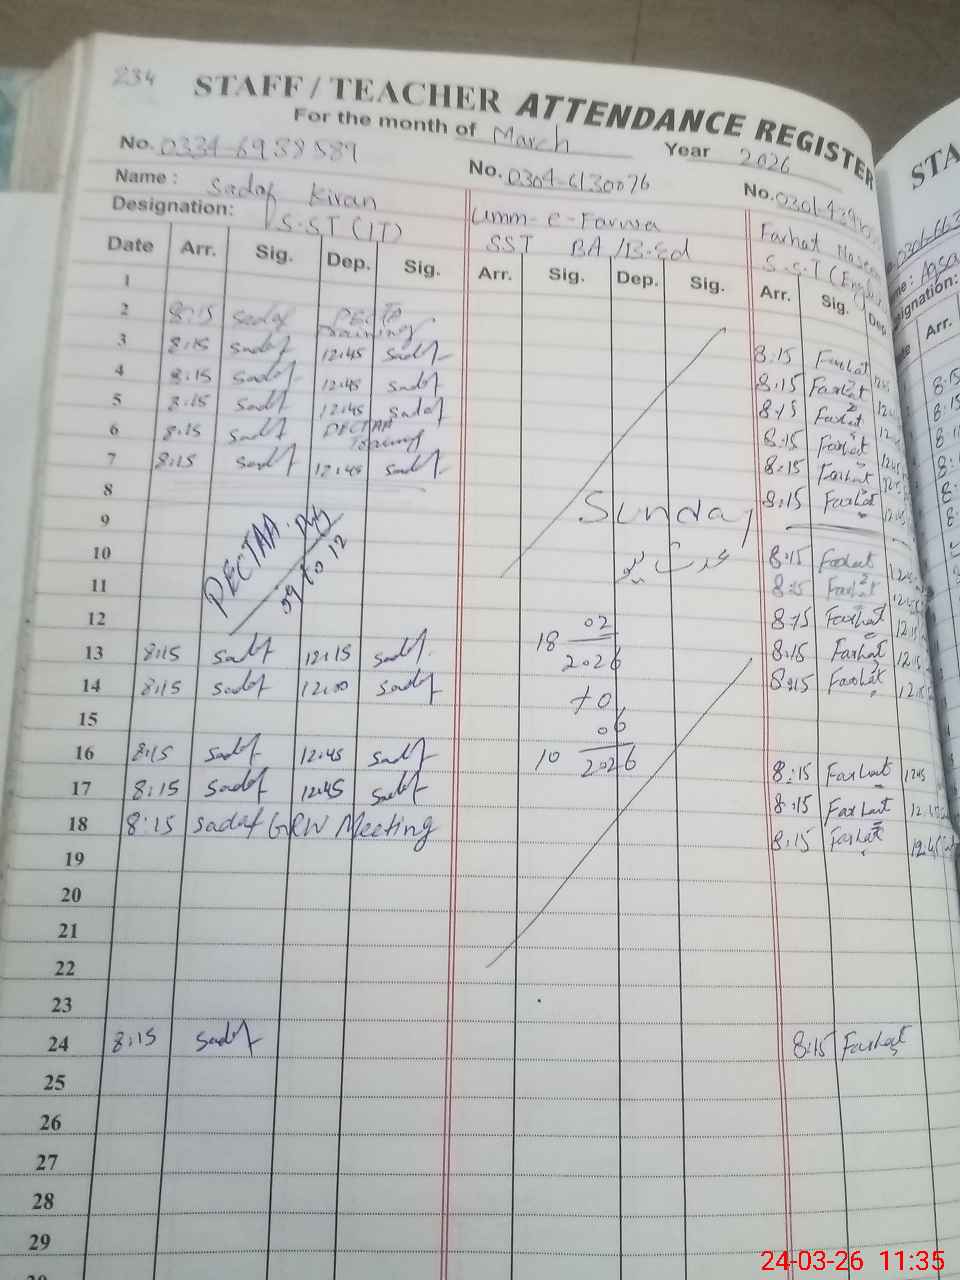 234
STAFF / TEACHER ATTENDANCE REGISTER
For the month of March Year 2026
No. 0334-6938589
No. 0304-6130076
No. 0301-
Name : Sadaf Kiran
Umm-e-Farwa
Farhat
Designation: S.S.T (IT)
SST BA/B.Ed
S.S.T (English
Date Arr. Sig. Dep. Sig. Arr. Sig. Dep. Sig. Arr. Sig. Dep.
1
2 8:15 Sadaf PECTA Training
3 8:15 Sadaf 12:45 Sadaf 8:15 Farhat
4 8:15 Sadaf 12:45 Sadaf 8:15 Farhat
5 8:15 Sadaf 12:45 Sadaf 8:15 Farhat
6 8:15 Sadaf PECTAA Training 8:15 Farhat
7 8:15 Sadaf 12:45 Sadaf 8:15 Farhat
8 8:15 Farhat
Sunday
9
PECTAA
09 to 12
10 8:15 Farhat
11 8:15 Farhat
12 8:15 Farhat
18 02 2026
13 8:15 Sadaf 12:15 Sadaf 8:15 Farhat 12:15
14 8:15 Sadaf 12:00 Sadaf 8:15 Farhat 12:15
to
15
10 06 2026
16 8:15 Sadaf 12:45 Sadaf 8:15 Farhat 12:45
17 8:15 Sadaf 12:45 Sadaf 8:15 Farhat
18 8:15 Sadaf GRW Meeting 8:15 Farhat
19
20
21
22
23
24 8:15 Sadaf 8:15 Farhat
25
26
27
28
29
STA
Designation:
Arr.
24-03-26 11:35